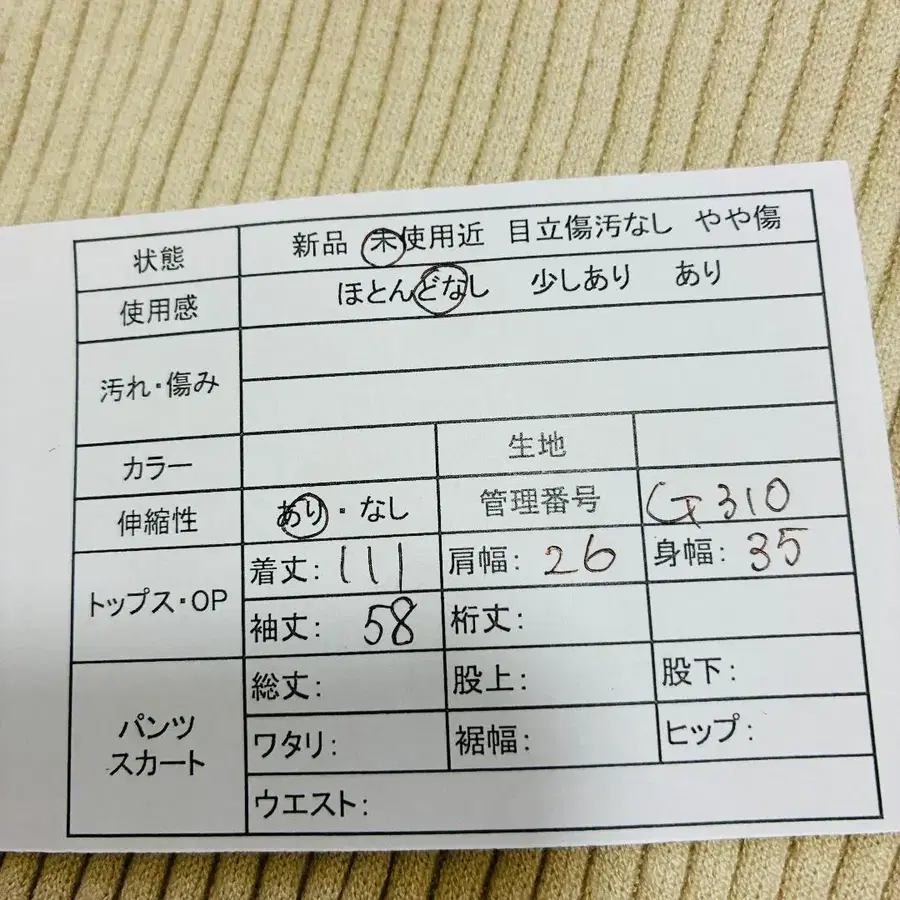 状態 新品 未使用近 目立傷汚なし やや傷
使用感 ほとんどなし 少しあり あり
汚れ・傷み
カラー 生地
伸縮性 あり・なし 管理番号 G310
トップス・OP 着丈: 111 肩幅: 26 身幅: 35
袖丈: 58 裄丈:
パンツ スカート 総丈: 股上: 股下:
ワタリ: 裾幅: ヒップ:
ウエスト: